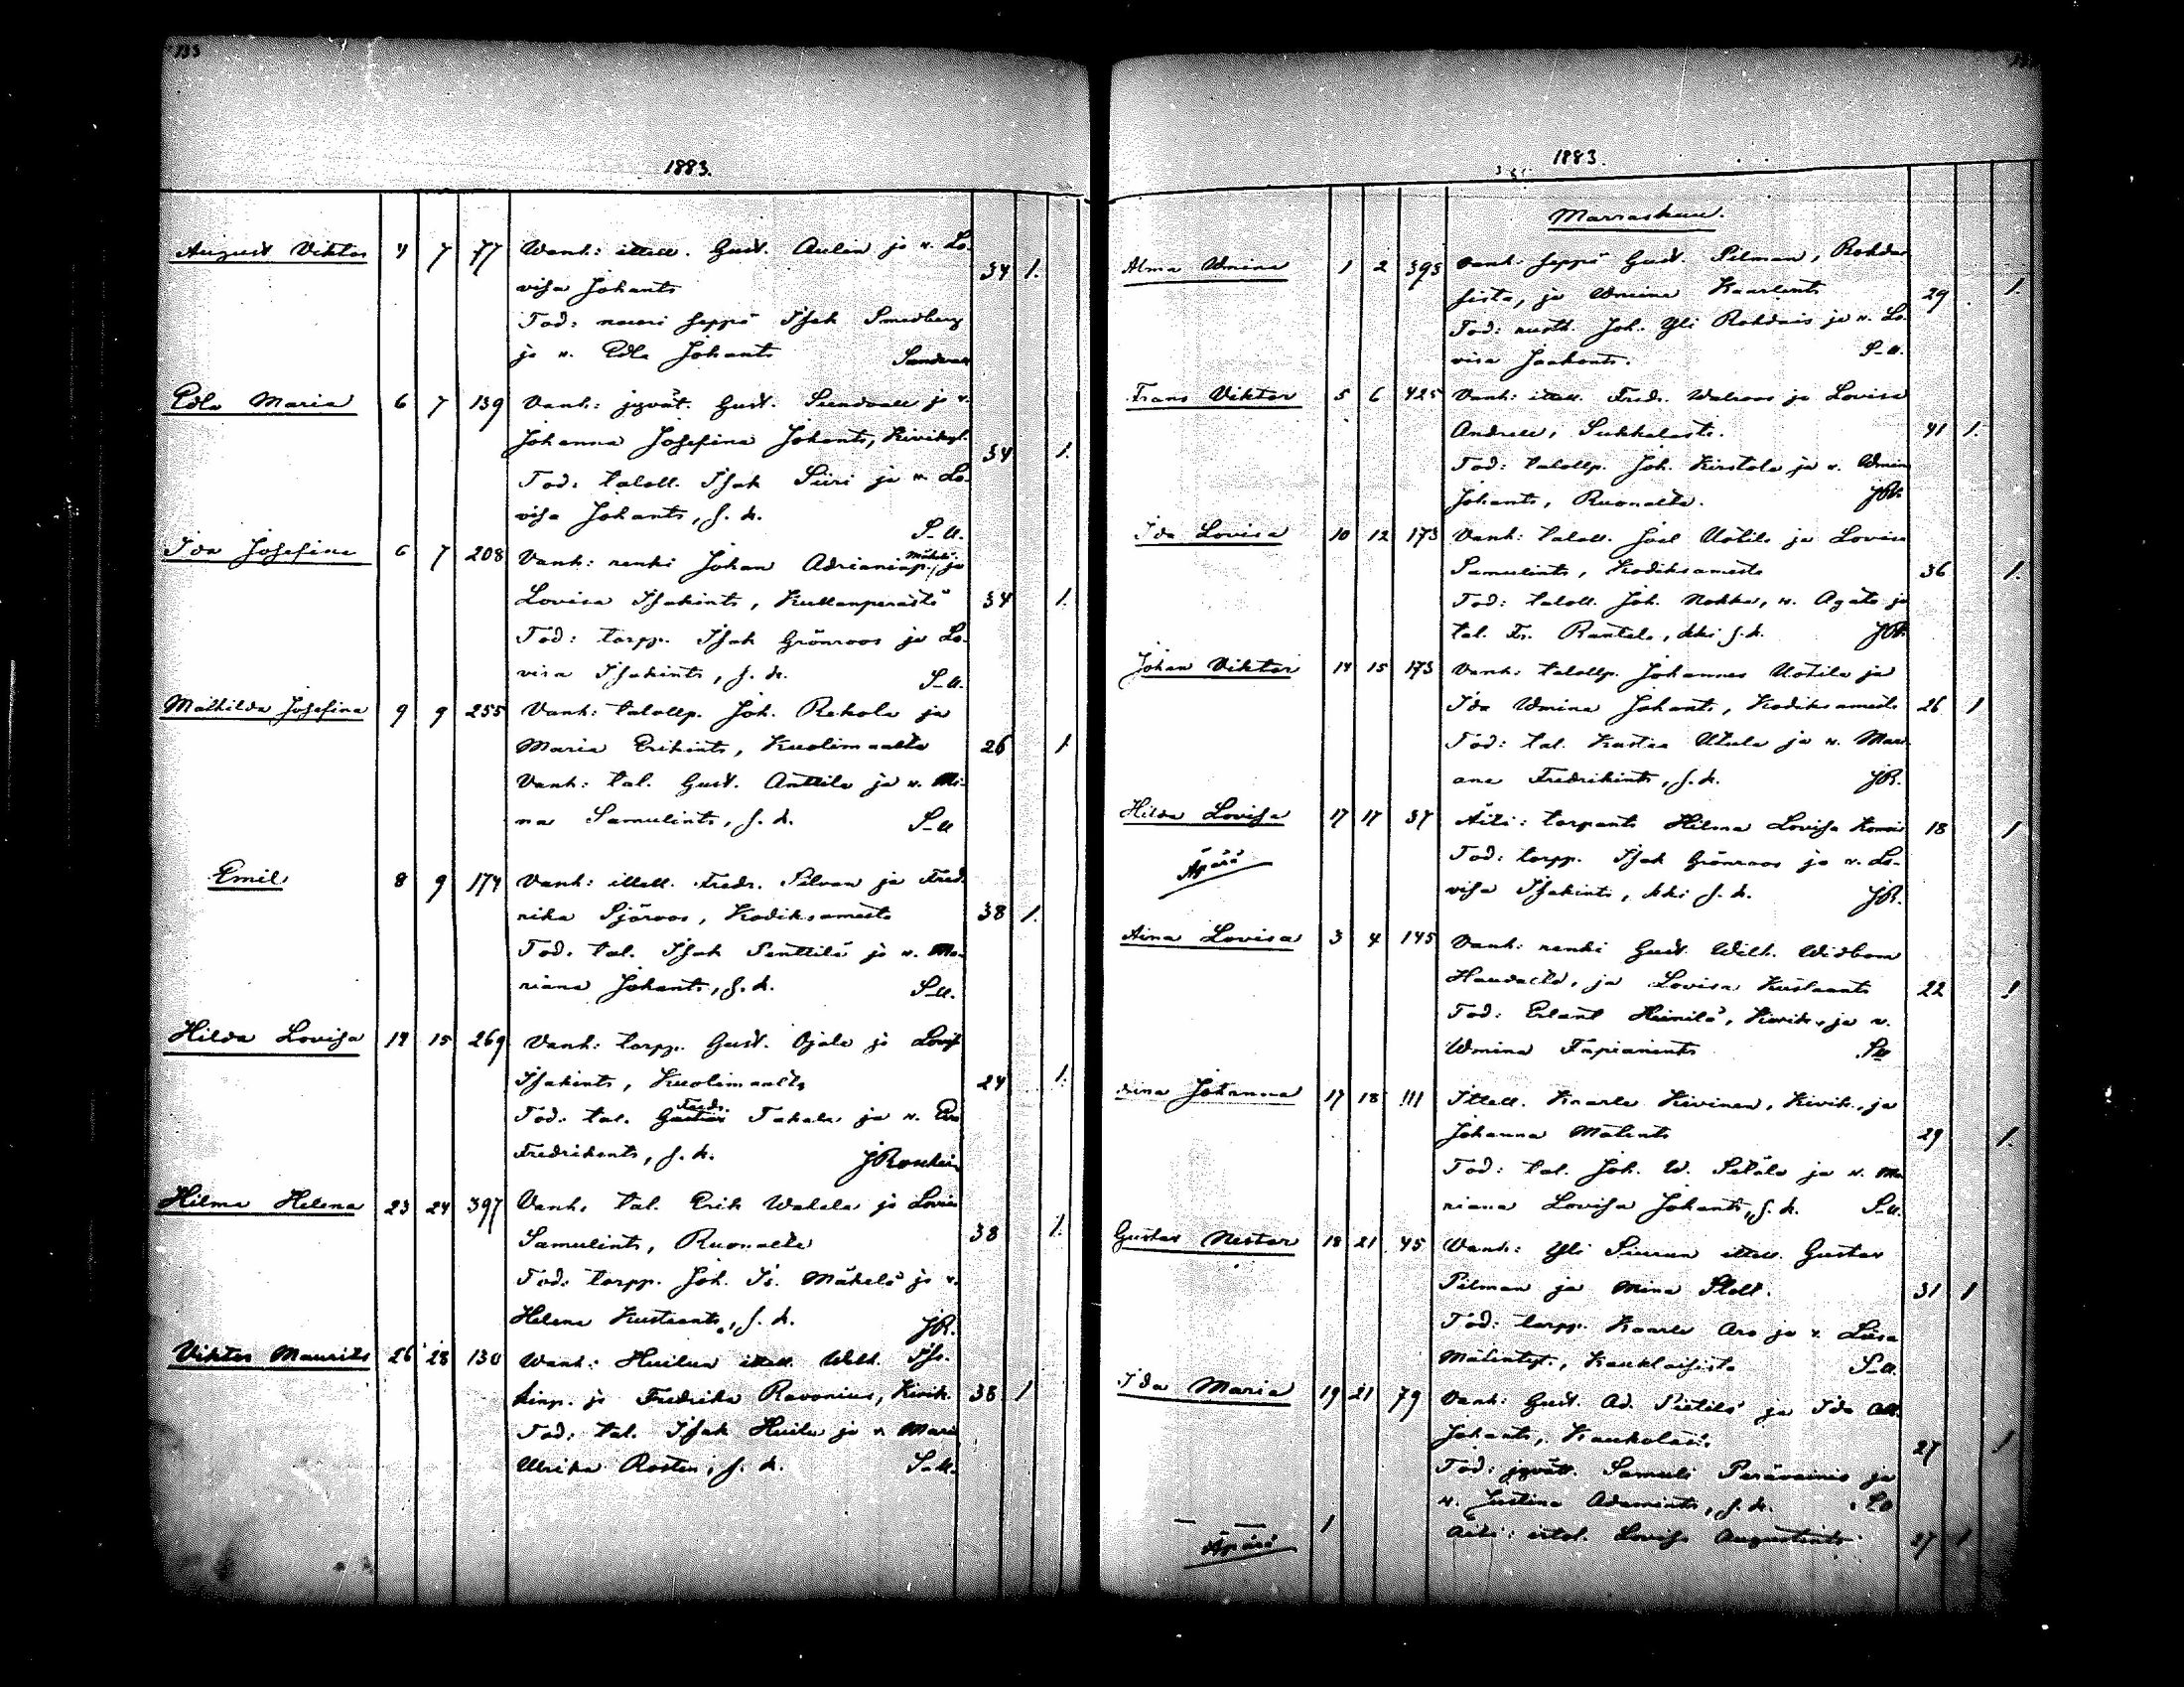 133
1883.
August Viktor 4 7 77 Wanh: itell. Gust. Aulin ja v. Lo-
visa Johants 34 1.
Tod: nuori seppä Isak Smedberg
ja v. Edla Johants Sundvall
Edla Maria 6 7 139 Vanh: jyvät. Gust. Sundvall ja v.
Johanna Josefina Johants, Kivikyl. 34 1.
Tod: taloll. Isak Siiri ja v. Lo-
visa Johants, s. k. S-ll.
Ida Josefina 6 7 208 Vanh: renki Johan Adrianinp. Mäkelä ja
Lovisa Isakints, Kullanperästä 34 1.
Tod: torpp. Isak Grönroos ja Lo-
visa Isakints, s. k. S-ll.
Mathilda Josefina 9 9 255 Vanh: talollp. Joh. Rekola ja
Maria Erikints, Kuolimaalta 26 1
Vanh: tal. Gust. Anttila ja v. Mi-
na Samulints, s. k. S-ll
Emil 8 9 174 Vanh: itell. Fredr. Silvan ja Fred-
rika Sjöroos, Kodiksamista 38 1.
Tod. tal. Isak Penttilä ja v. Ma-
riana Johants, s. k. S-ll.
Hilda Lovisa 14 15 269 Vanh: torpp. Gust. Ojala ja Lovisa
Isakints, Kuolimaalta 24 1.
Tod. tal. Gustav Fredr. Takala ja v. Eva
Fredrikints, s. k. JRoschier
Hilma Helena 23 24 397 Vanh. tal. Erik Wakala ja Lovisa
Samulints, Ruonalta 38 1.
Tod: torpp. Joh. Is. Mäkelä ja v.
Helena Kustaants, s. k. JR.
Viktor Maurits 26 28 130 Wanh: Huilun itell. Wilh. Isa-
kinp. ja Fredrika Ravonius, Kivik. 38 1
Tod: tal. Isak Huilu ja v Maria
Ulrika Rosten, s. k. S-ll.
1883.
Marraskuu.
Alma Wmina 1 2 393 Vanh: seppä Gust. Silman, Rohdai-
sista, ja Wmina Kaarlints 29 1.
Tod: rustit. Joh. Yli Rohdais ja v. Lo-
visa Jaakonts. S-ll.
Frans Viktor 5 6 425 Vanh: itell. Fredr. Walroos ja Lovisa
Andrell, Sukkalasts. 41 1.
Tod: talollp. Joh. Kirstola ja v. Wmina
Johants, Ruonalta. JR.
Ida Lovisa 10 12 173 Vanh: taloll. Joel Uotila ja Lovisa
Samulints, Kodiksamista 36 1.
Tod: taloll. Joh. Nokka, v. Agata ja
tal. Fr. Rantala, kki s. k. JR.
Johan Viktor 14 15 173 Vanh: talollp. Johannes Uotila ja
Ida Wmina Johants, Kodiksamista 26 1
Tod: tal. Kustaa Utula ja v. Mari-
ana Fredrikints, s. k. JR.
Hilda Lovisa 17 17 37 Äiti: torpants Hilma Lovisa 18 1
Äpärä Tod: torpp. Isak Grönroos ja v. Lo-
visa Isakints, kki s. k. JR.
Aina Lovisa 3 4 145 Vanh: renki Gust. Wilh. Widbom
Haudalta, ja Lovisa Kustaants 22 1
Tod: Erlant Heinilä, Kivik. ja v.
Wmina Fapianints S-ll
Johanna 17 18 111 Itell. Kaarle Kivinen, Kivik. ja
Johanna Matints 29 1.
Tod: tal. Joh. W. Setälä ja v. Ma-
riana Lovisa Johants, s. k. S-ll.
Gustav Nestor 18 21 45 Vanh: Yli Siuran itell. Gustav
Silman ja Mina Stoll. 31 1
Tod: torpp. Kaarle Aro ja v. Liisa
Matintyt., Kauklaisista S-ll.
Ida Maria 19 21 79 Vanh: Gust. Ad. Pietilä ja Ida Alb.
Johants, Kaukolais. 27 1
Tod: jyvätt. Samuli Perävainio ja
v. Justina Adamints, s. k. S-ll
Äpärä 1 Äiti: istol. Lovisa Augustints 27 1